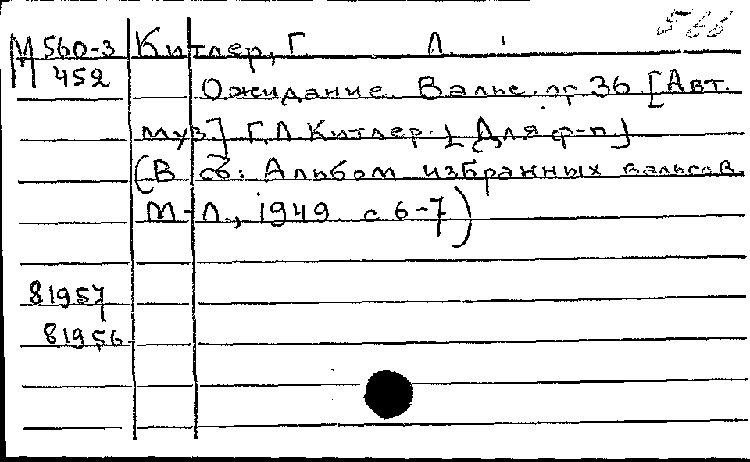 566
М 560-3 Китлер, Г. Л.
452
Ожидание. Вальс. ор 36 [Авт.
муз.] Г.Л Китлер. [Для ф-п]
(В сб: Альбом избранных вальсов.
М-Л., 1949 с 6-7)
81957
81956